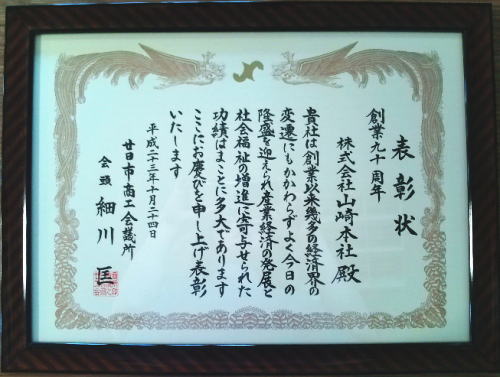 表彰状
創業九十周年
株式会社山崎本社殿
貴社は創業以来幾多の経済界の
変遷にもかかわらずよく今日の
隆盛を迎えられ産業経済の発展と
社会福祉の増進に寄与せられた
功績はまことに多大であります
ここにお慶びを申し上げ表彰
いたします
平成二十三年十月二十四日
廿日市商工会議所
会頭 細川 匡